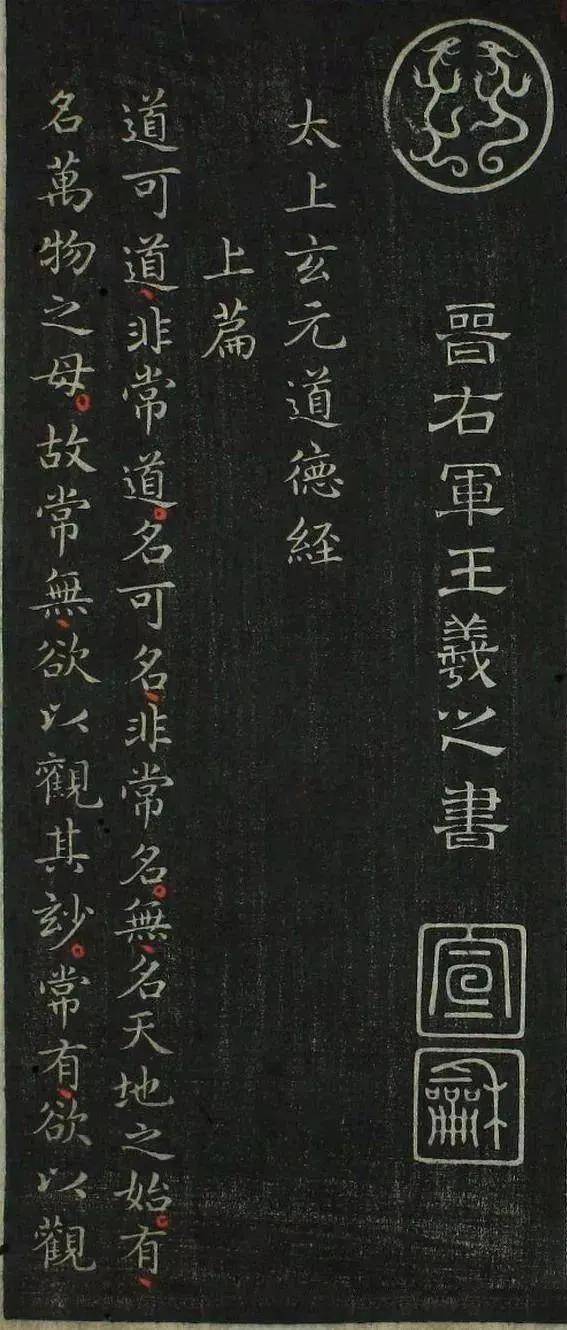 晋右軍王羲之書
宣
龢
太上玄元道德経
上篇
道可道、非常道。名可名、非常名。無、名天地之始。有、
名萬物之母。故常無、欲以觀其玅。常有、欲以觀